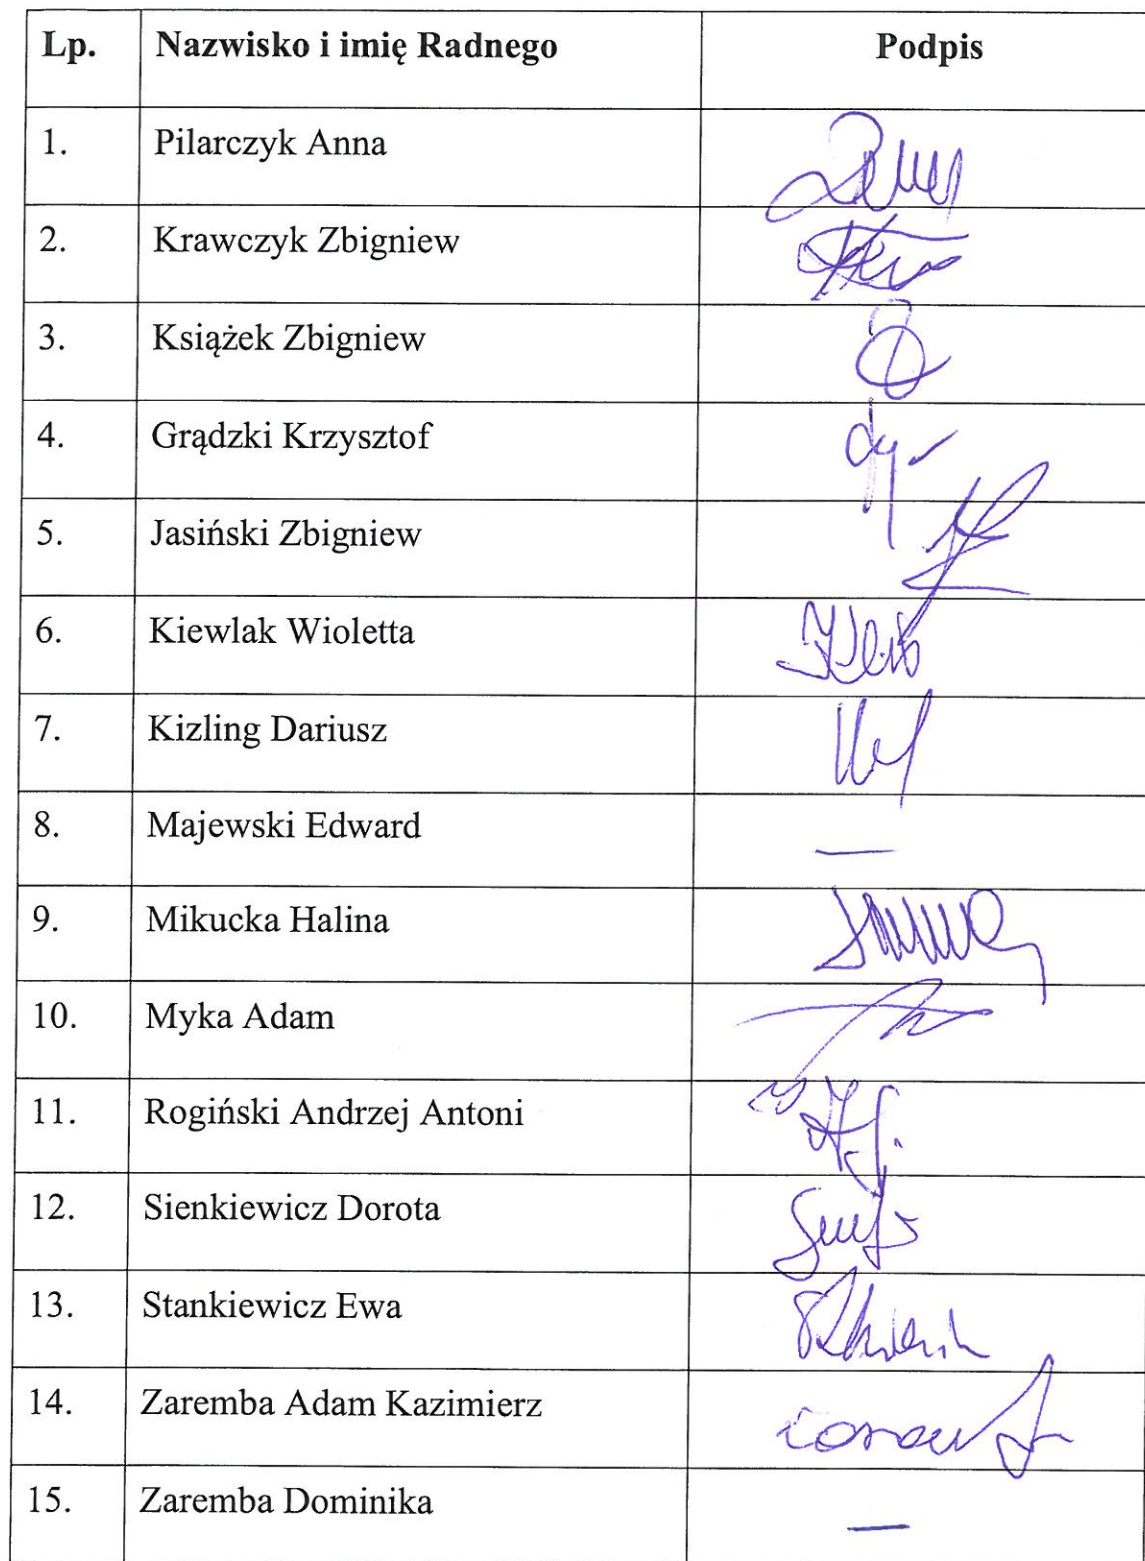 Lp. Nazwisko i imię Radnego Podpis
1. Pilarczyk Anna
2. Krawczyk Zbigniew
3. Książek Zbigniew
4. Grądzki Krzysztof
5. Jasiński Zbigniew
6. Kiewlak Wioletta
7. Kizling Dariusz
8. Majewski Edward —
9. Mikucka Halina
10. Myka Adam
11. Rogiński Andrzej Antoni
12. Sienkiewicz Dorota
13. Stankiewicz Ewa
14. Zaremba Adam Kazimierz
15. Zaremba Dominika —